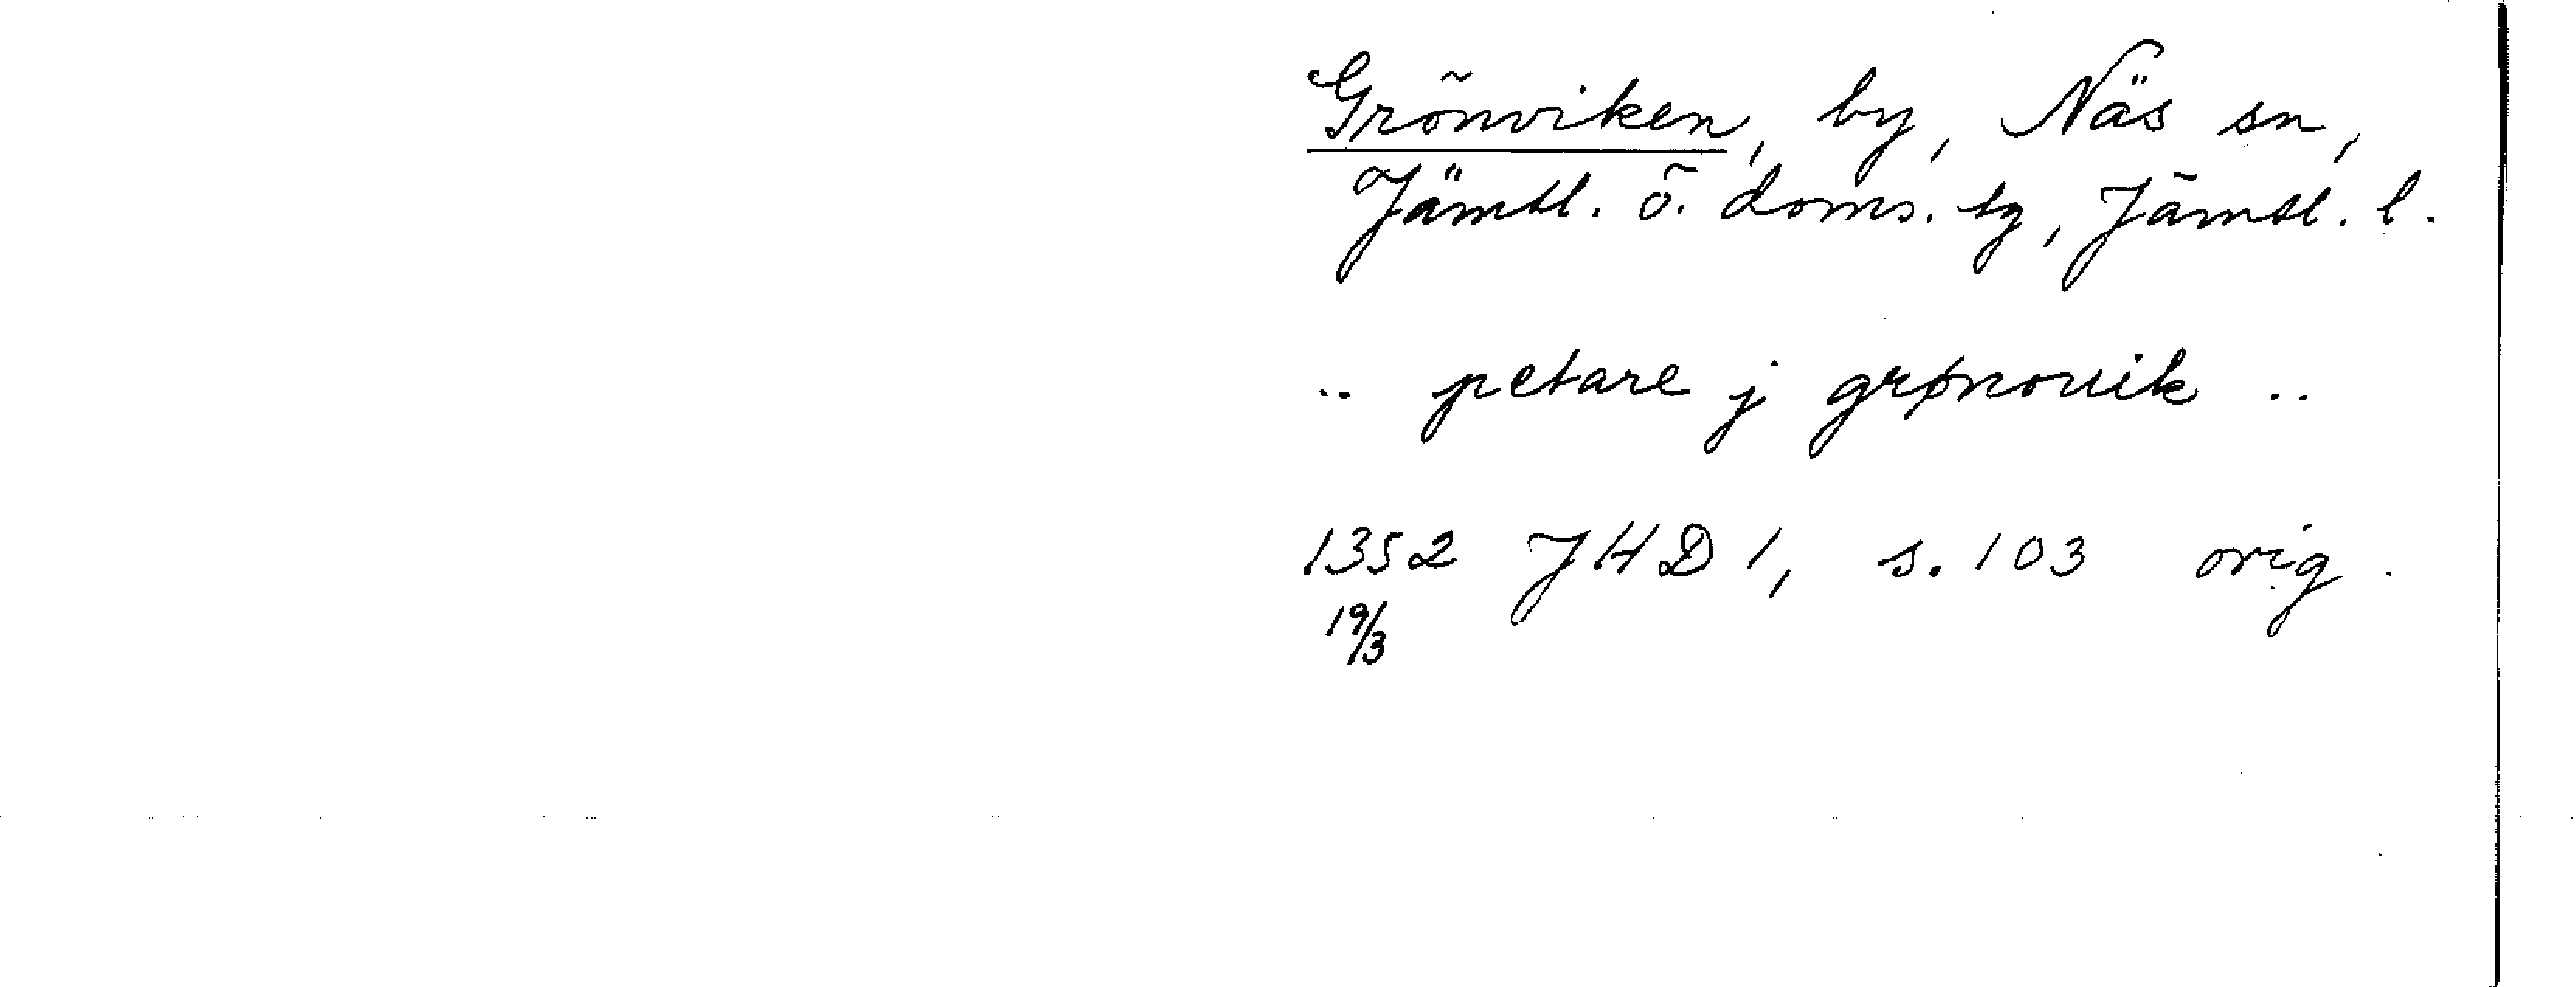 Grönviken, by, Näs sn,
Jämtl. ö. doms. tg, Jämtl. l.
.. petare j grønouik ..
1352 JHD 1, s. 103 orig.
19/3